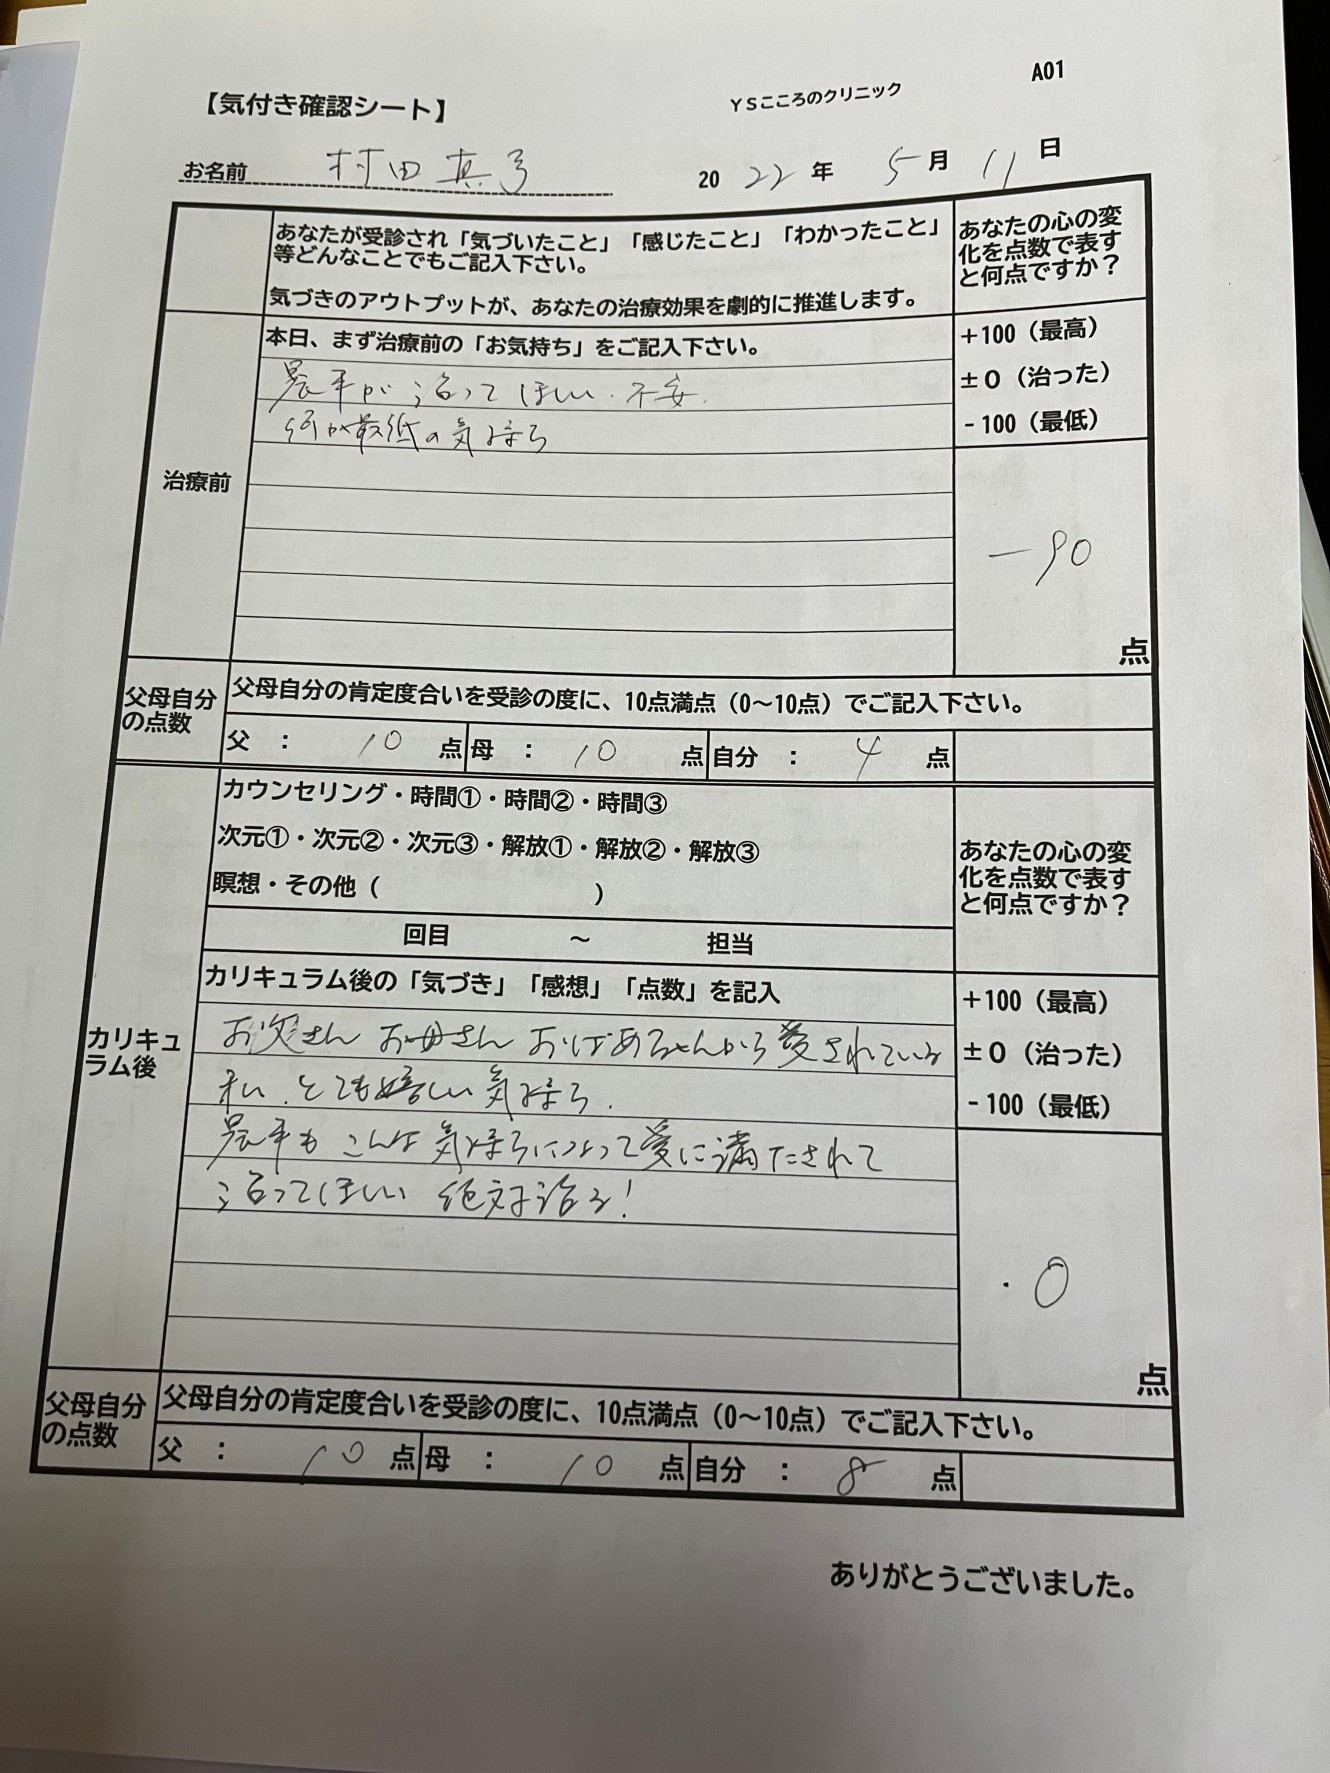 A01
【気付き確認シート】
YSこころのクリニック
お名前 村田 真弓
2022年 5月 11日
あなたが受診され「気づいたこと」「感じたこと」「わかったこと」
等どんなことでもご記入下さい。
気づきのアウトプットが、あなたの治療効果を劇的に推進します。
あなたの心の変
化を点数で表す
と何点ですか？
治療前
本日、まず治療前の「お気持ち」をご記入下さい。
+100（最高）
±0（治った）
-100（最低）
晨平が治ってほしい.不安.
何か最低の気持ち
-90
点
父母自分
の点数
父母自分の肯定度合いを受診の度に、10点満点（0～10点）でご記入下さい。
父 ： 10 点 母 ： 10 点 自分 ： 4 点
カリキュ
ラム後
カウンセリング・時間①・時間②・時間③
次元①・次元②・次元③・解放①・解放②・解放③
瞑想・その他（ ）
回目 ～ 担当
あなたの心の変
化を点数で表す
と何点ですか？
カリキュラム後の「気づき」「感想」「点数」を記入
+100（最高）
±0（治った）
-100（最低）
お父さん お母さん おばあちゃんから愛されている
私、とても嬉しい気持ち.
晨平もこんな気持ちになって愛に満たされて
治ってほしい 絶対治る!
0
点
父母自分
の点数
父母自分の肯定度合いを受診の度に、10点満点（0～10点）でご記入下さい。
父 ： 10 点 母 ： 10 点 自分 ： 8 点
ありがとうございました。